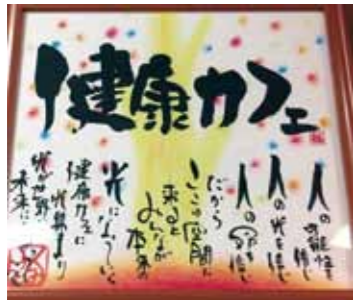 健康カフェ
人の可能性を信じ
人の光を信じ
人の命を信じ
だから
ここの空間に
来ると
みんなが
本来の
光になっていく
健康カフェに
光集まり
光が世界
未来に